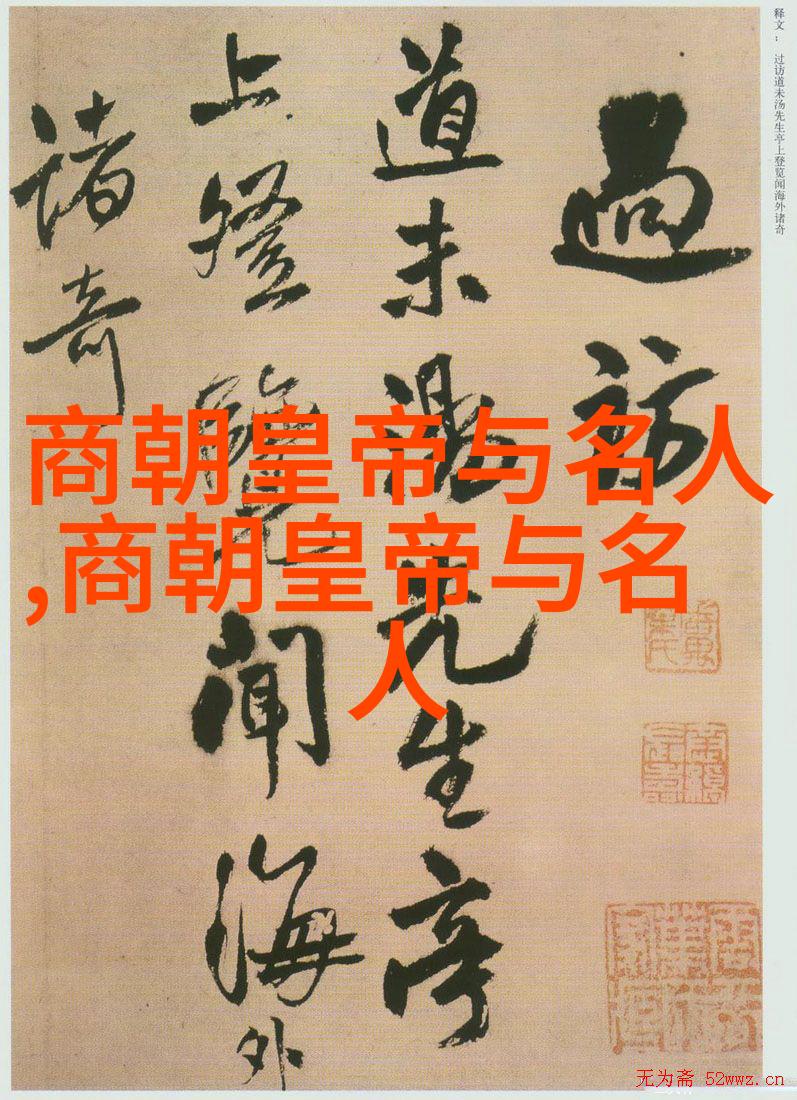 释文： 过访道未汤先生亭上登览闻海外诸奇
過訪
道未湯先生亭
上登覽聞海外
諸奇
商朝皇帝与名人
,商朝皇帝与名
人
无为斋 52wwz.cn